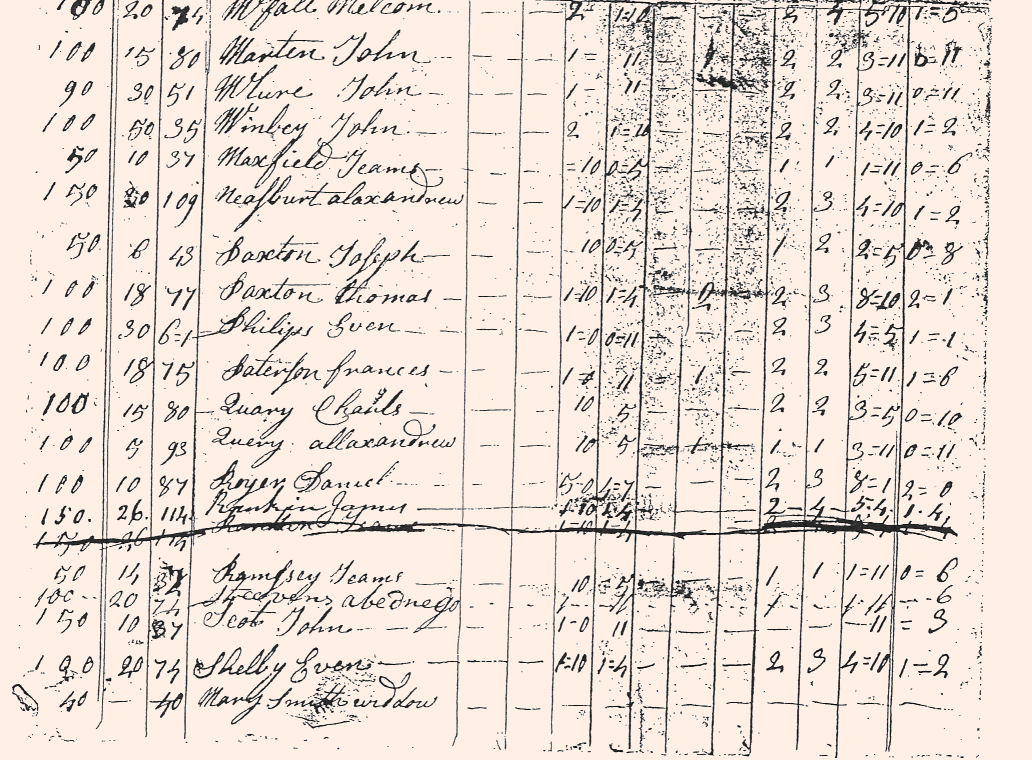 100 20 74 Mfall Melcom. 2 1=10 — — — 2 4 5=10 1=5
100 15 80 Marten John — — — 1= 11 — 1 — 2 2 3=11 0=11
90 30 51 Mlure John — — — 1= 11 — — — 2 2 3=11 0=11
100 50 35 Winbey John — — — 2 1=10 — — — 2 2 4=10 1=2
50 10 37 Maxfield Jeams — — =10 0=5 — — — 1 1 1=11 0=6
150 30 109 Neafburt alaxandrew — — 1=10 1=4 — — — 2 3 4=10 1=2
50 6 43 Saxton Joseph — — — 10 0=5 — — — 1 2 2=5 0=8
100 18 77 Saxton thomas — — — 1=10 1=4 — 2 — 2 3 8=10 2=1
100 30 6=1 Philips Even — — — 1=0 0=11 — — — 2 3 4=5 1=1
100 18 75 Paterson frances — — — 1= 11 — 1 — 2 2 5=11 1=6
100 15 80 Quary Charls — — — 10 5 — — — 2 2 3=5 0=10
100 5 93 Query allaxandrew — — 10 5 — 1 — 1 1 3=11 0=11
100 10 87 Royer Daniel — — — 5=0 1=7 — — — 2 3 8=1 2=0
150. 26. 114. Rankin James 1=10 1=4 2 — 4 5.4, 1.4,
150 26 114
50 14 37 Ramfsey Jeams — — — 10 =5 — — — 1 1 1=11 0=6
100 20 74 Steevens abednego — — 1 — 6
150 10 37 Scot John — — — 1=0 11 — — — — — 11 = 3
100 20 74 Shelby Even — — — 1=10 1=4 — — — 2 3 4=10 1=2
40 — 40 Mary Smith widdow — — — — — — — — — — —